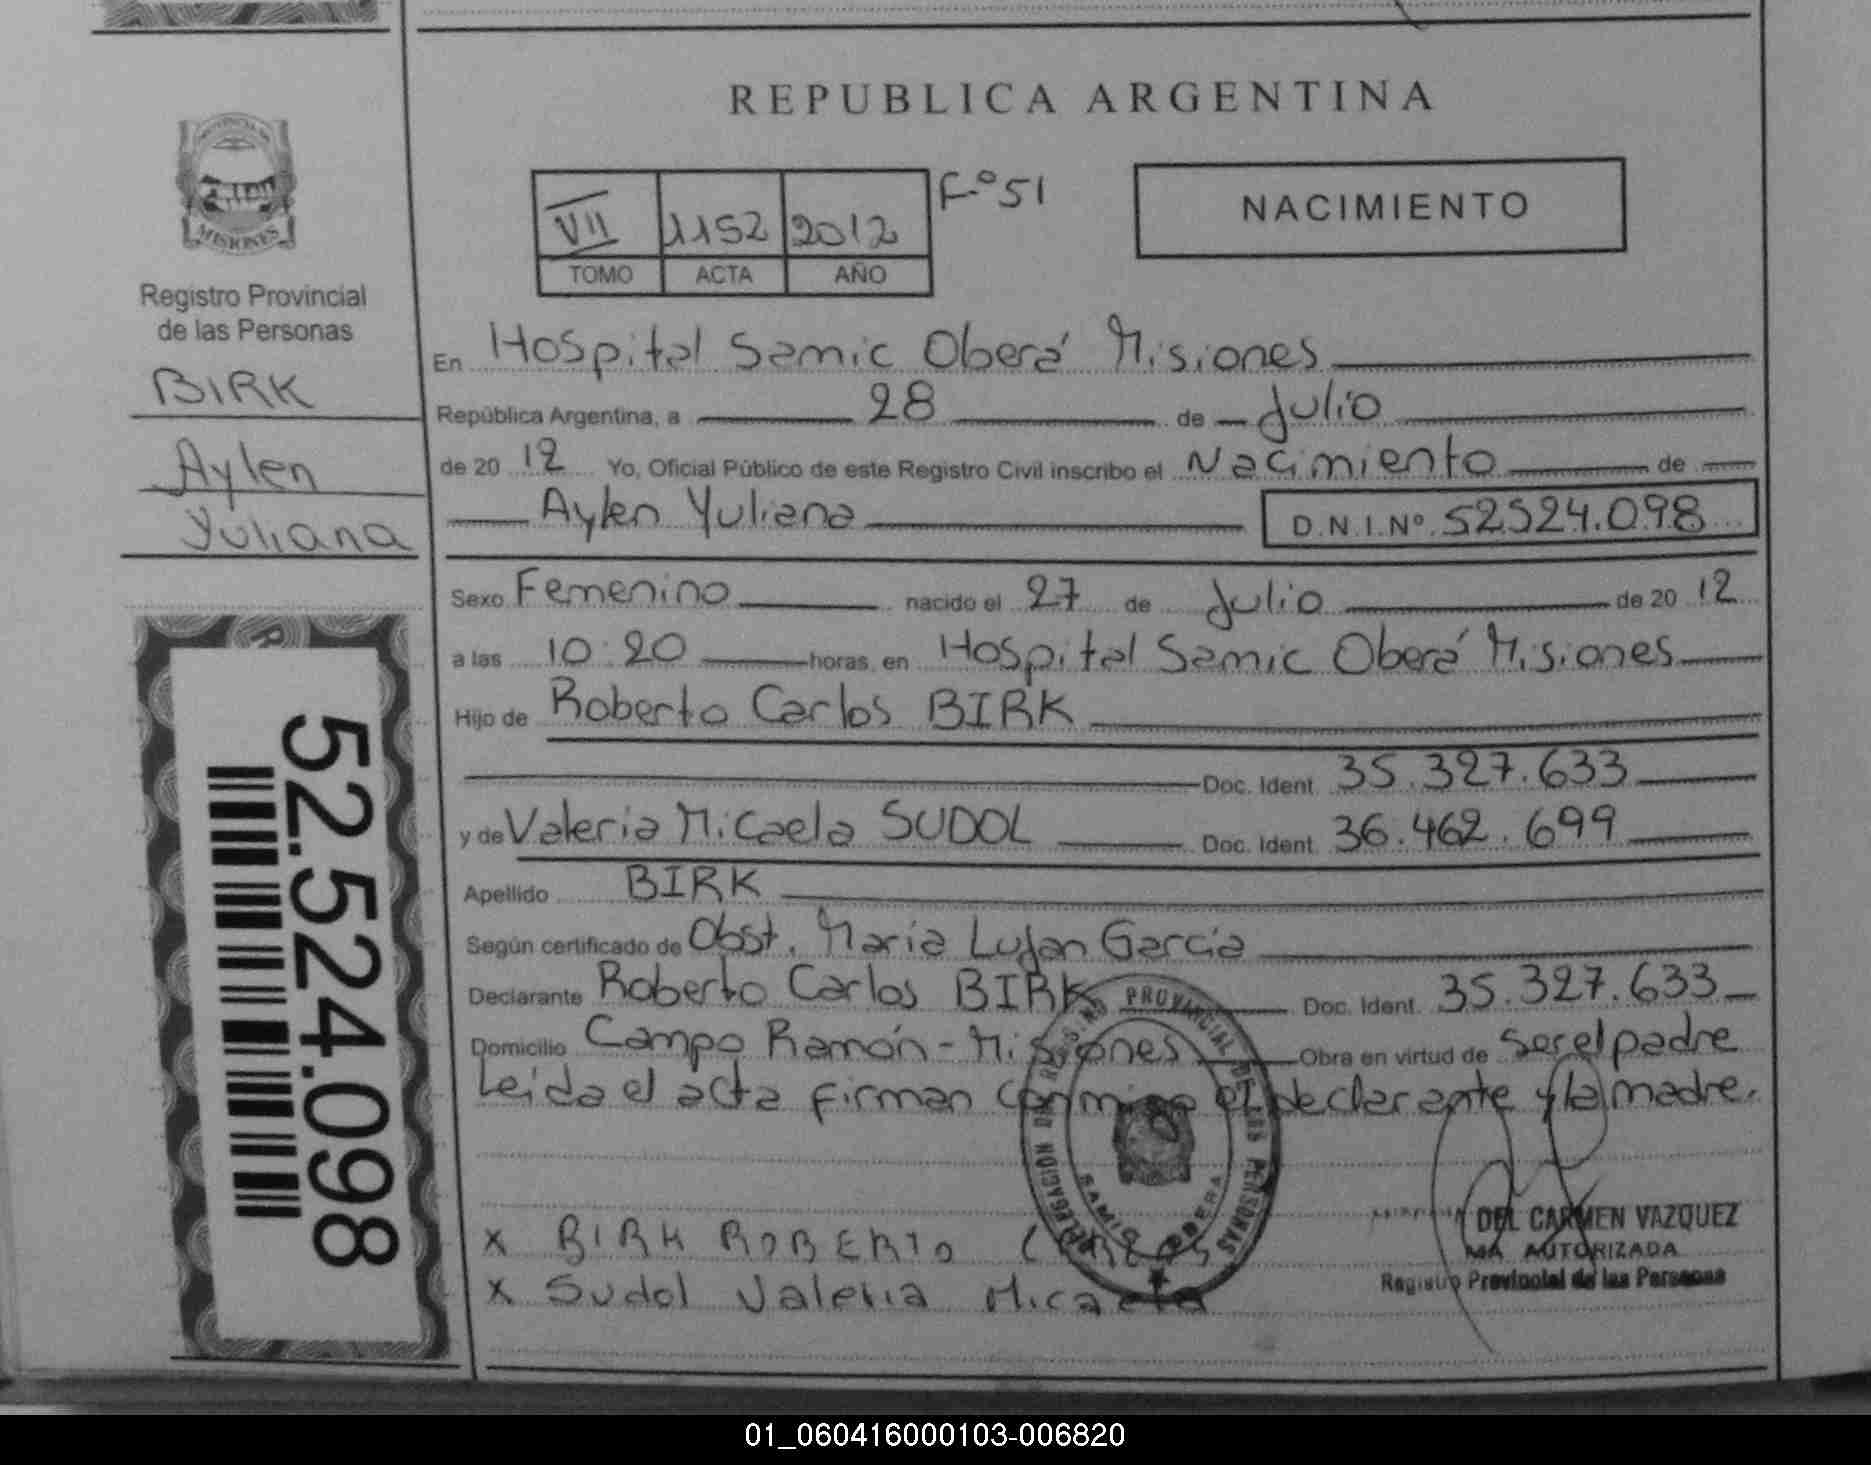 REPUBLICA ARGENTINA
PROVINCIA DE
MISIONES
Registro Provincial
de las Personas
BIRK
Aylen
Yuliana
52.524.098
VII 1152 2012 Fº 51
TOMO ACTA AÑO
NACIMIENTO
En Hospital Samic Oberá Misiones
República Argentina, a 28 de Julio
de 20 12 Yo, Oficial Público de este Registro Civil inscribo el Nacimiento de
Aylen Yuliana D.N.I.Nº 52524.098
Sexo Femenino nacido el 27 de Julio de 20 12
a las 10:20 horas, en Hospital Samic Oberá Misiones
Hijo de Roberto Carlos BIRK
Doc. Ident. 35.327.633
y de Valeria Micaela SUDOL Doc. Ident. 36.462.699
Apellido BIRK
Según certificado de Obst. Maria Lujan Garcia
Declarante Roberto Carlos BIRK Doc. Ident. 35.327.633
Domicilio Campo Ramón - Misiones Obra en virtud de ser el padre
Leida el acta firman conmigo el declarante y la madre.
x BIRK ROBERTO CARLOS
x Sudol Valeria Micaela
PROVINCIAL DE LAS PERSONAS
DELEGACION
SAMIC OBERA
DEL CARMEN VAZQUEZ
AUTORIZADA
Registro Provincial de las Personas
01_060416000103-006820